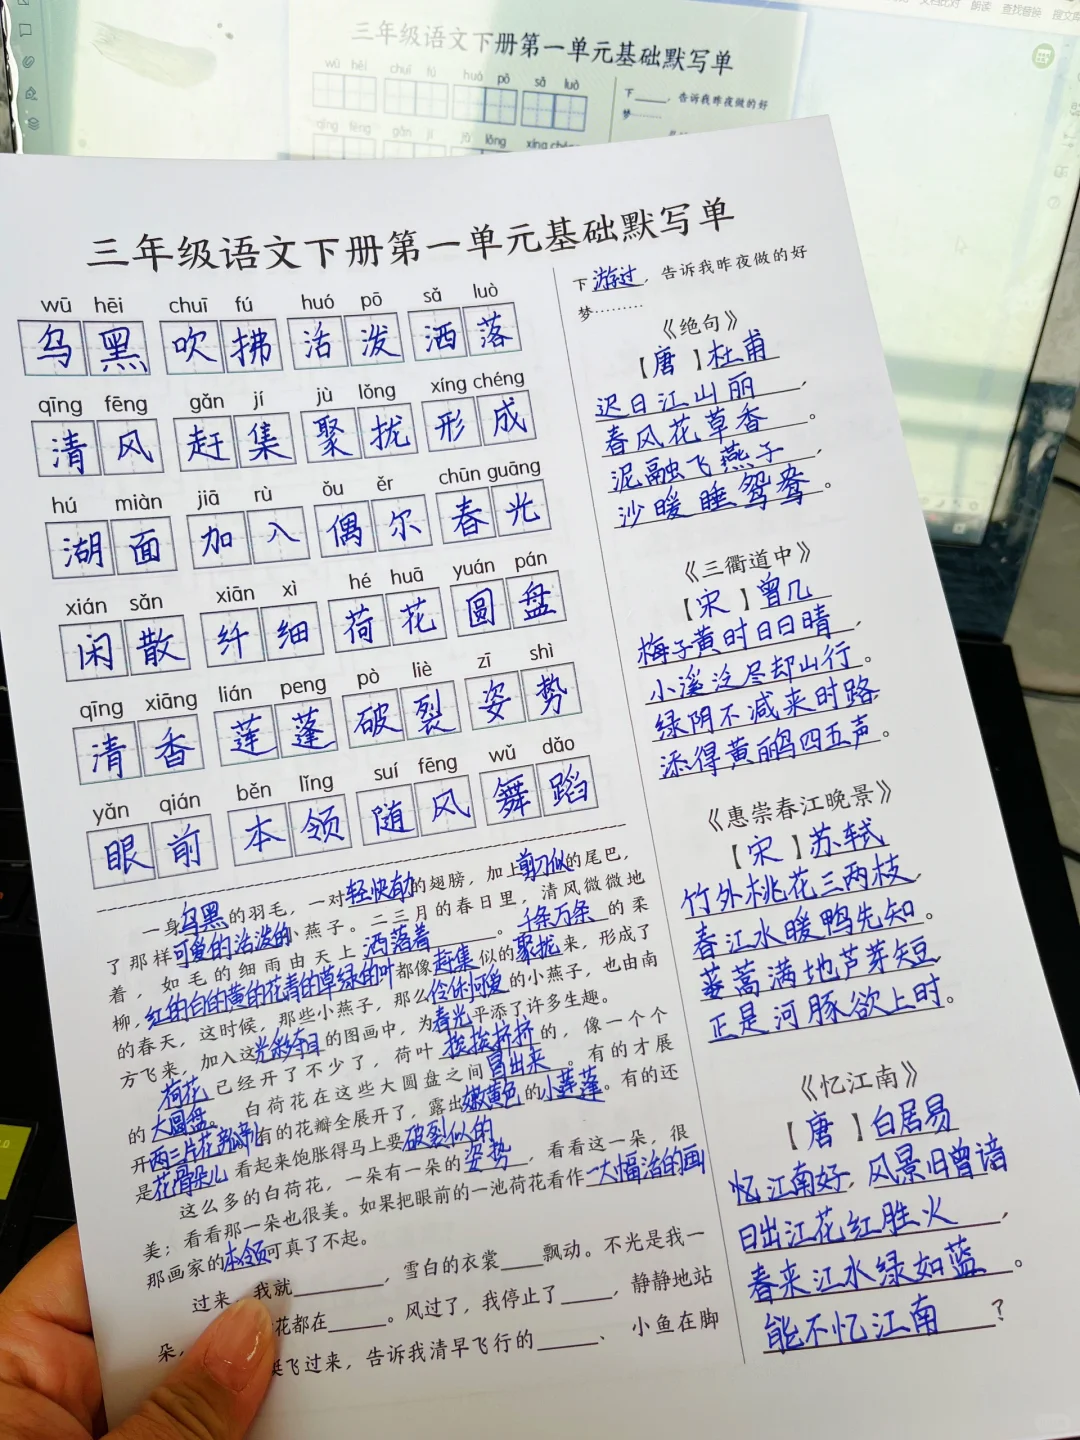 三年级语文下册第一单元基础默写单
wū hēi chuī fú huó pō sǎ luò
三年级语文下册第一单元基础默写单
wū hēi chuī fú huó pō sǎ luò
乌黑 吹拂 活泼 洒落
qīng fēng gǎn jí jù lǒng xíng chéng
清风 赶集 聚拢 形成
hú miàn jiā rù ǒu ěr chūn guāng
湖面 加入 偶尔 春光
xián sǎn xiān xì hé huā yuán pán
闲散 纤细 荷花 圆盘
qīng xiāng lián peng pò liè zī shì
清香 莲蓬 破裂 姿势
yǎn qián běn lǐng suí fēng wǔ dǎo
眼前 本领 随风 舞蹈
一身乌黑的羽毛，一对轻快有力的翅膀，加上剪刀似的尾巴，
了那样可爱的活泼的小燕子。二三月的春日里，清风微微地
着，如毛的细雨由天上洒落着。千条万条的柔
柳，红的白的黄的花青的草绿的叶都像赶集似的聚拢来，形成了
的春天，这时候，那些小燕子，那么伶俐可爱的小燕子，也由南
方飞来，加入这光彩夺目的图画中，为春光平添了许多生趣。
荷花已经开了不少了，荷叶挨挨挤挤的，像一个个
的大圆盘。白荷花在这些大圆盘之间冒出来。有的才展
开两三片花瓣儿有的花瓣全展开了，露出嫩黄色的小莲蓬。有的还
是花骨朵儿看起来饱胀得马上要破裂似的
这么多的白荷花，一朵有一朵的姿势，看看这一朵，很
美；看看那一朵也很美。如果把眼前的一池荷花看作一大幅活的画
那画家的本领可真了不起。
过来，我就，雪白的衣裳飘动。不光是我一
朵，花都在。风过了，我停止了，静静地站
蜓飞过来，告诉我清早飞行的、小鱼在脚
下游过，告诉我昨夜做的好
梦………
《绝句》
【唐】杜甫
迟日江山丽，
春风花草香。
泥融飞燕子，
沙暖睡鸳鸯。
《三衢道中》
【宋】曾几
梅子黄时日日晴，
小溪泛尽却山行。
绿阴不减来时路
添得黄鹂四五声。
《惠崇春江晚景》
【宋】苏轼
竹外桃花三两枝，
春江水暖鸭先知。
蒌蒿满地芦芽短，
正是河豚欲上时。
《忆江南》
【唐】白居易
忆江南好，风景旧曾谙
日出江花红胜火，
春来江水绿如蓝。
能不忆江南？